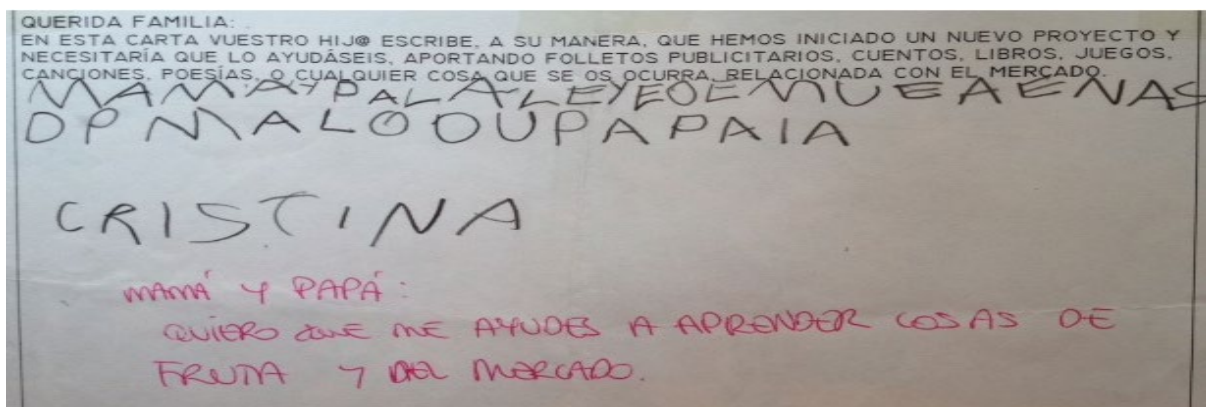 QUERIDA FAMILIA:
EN ESTA CARTA VUESTRO HIJ@ ESCRIBE, A SU MANERA, QUE HEMOS INICIADO UN NUEVO PROYECTO Y
NECESITARÍA QUE LO AYUDÁSEIS, APORTANDO FOLLETOS PUBLICITARIOS, CUENTOS, LIBROS, JUEGOS,
CANCIONES, POESÍAS, O CUALQUIER COSA QUE SE OS OCURRA, RELACIONADA CON EL MERCADO.
MAMAYPALALEYEOEMUEAENAS
DPMALOOUPAPAIA
CRISTINA
MAMÁ Y PAPÁ:
QUIERO QUE ME AYUDES A APRENDER COSAS DE
FRUTA Y DEL MERCADO.